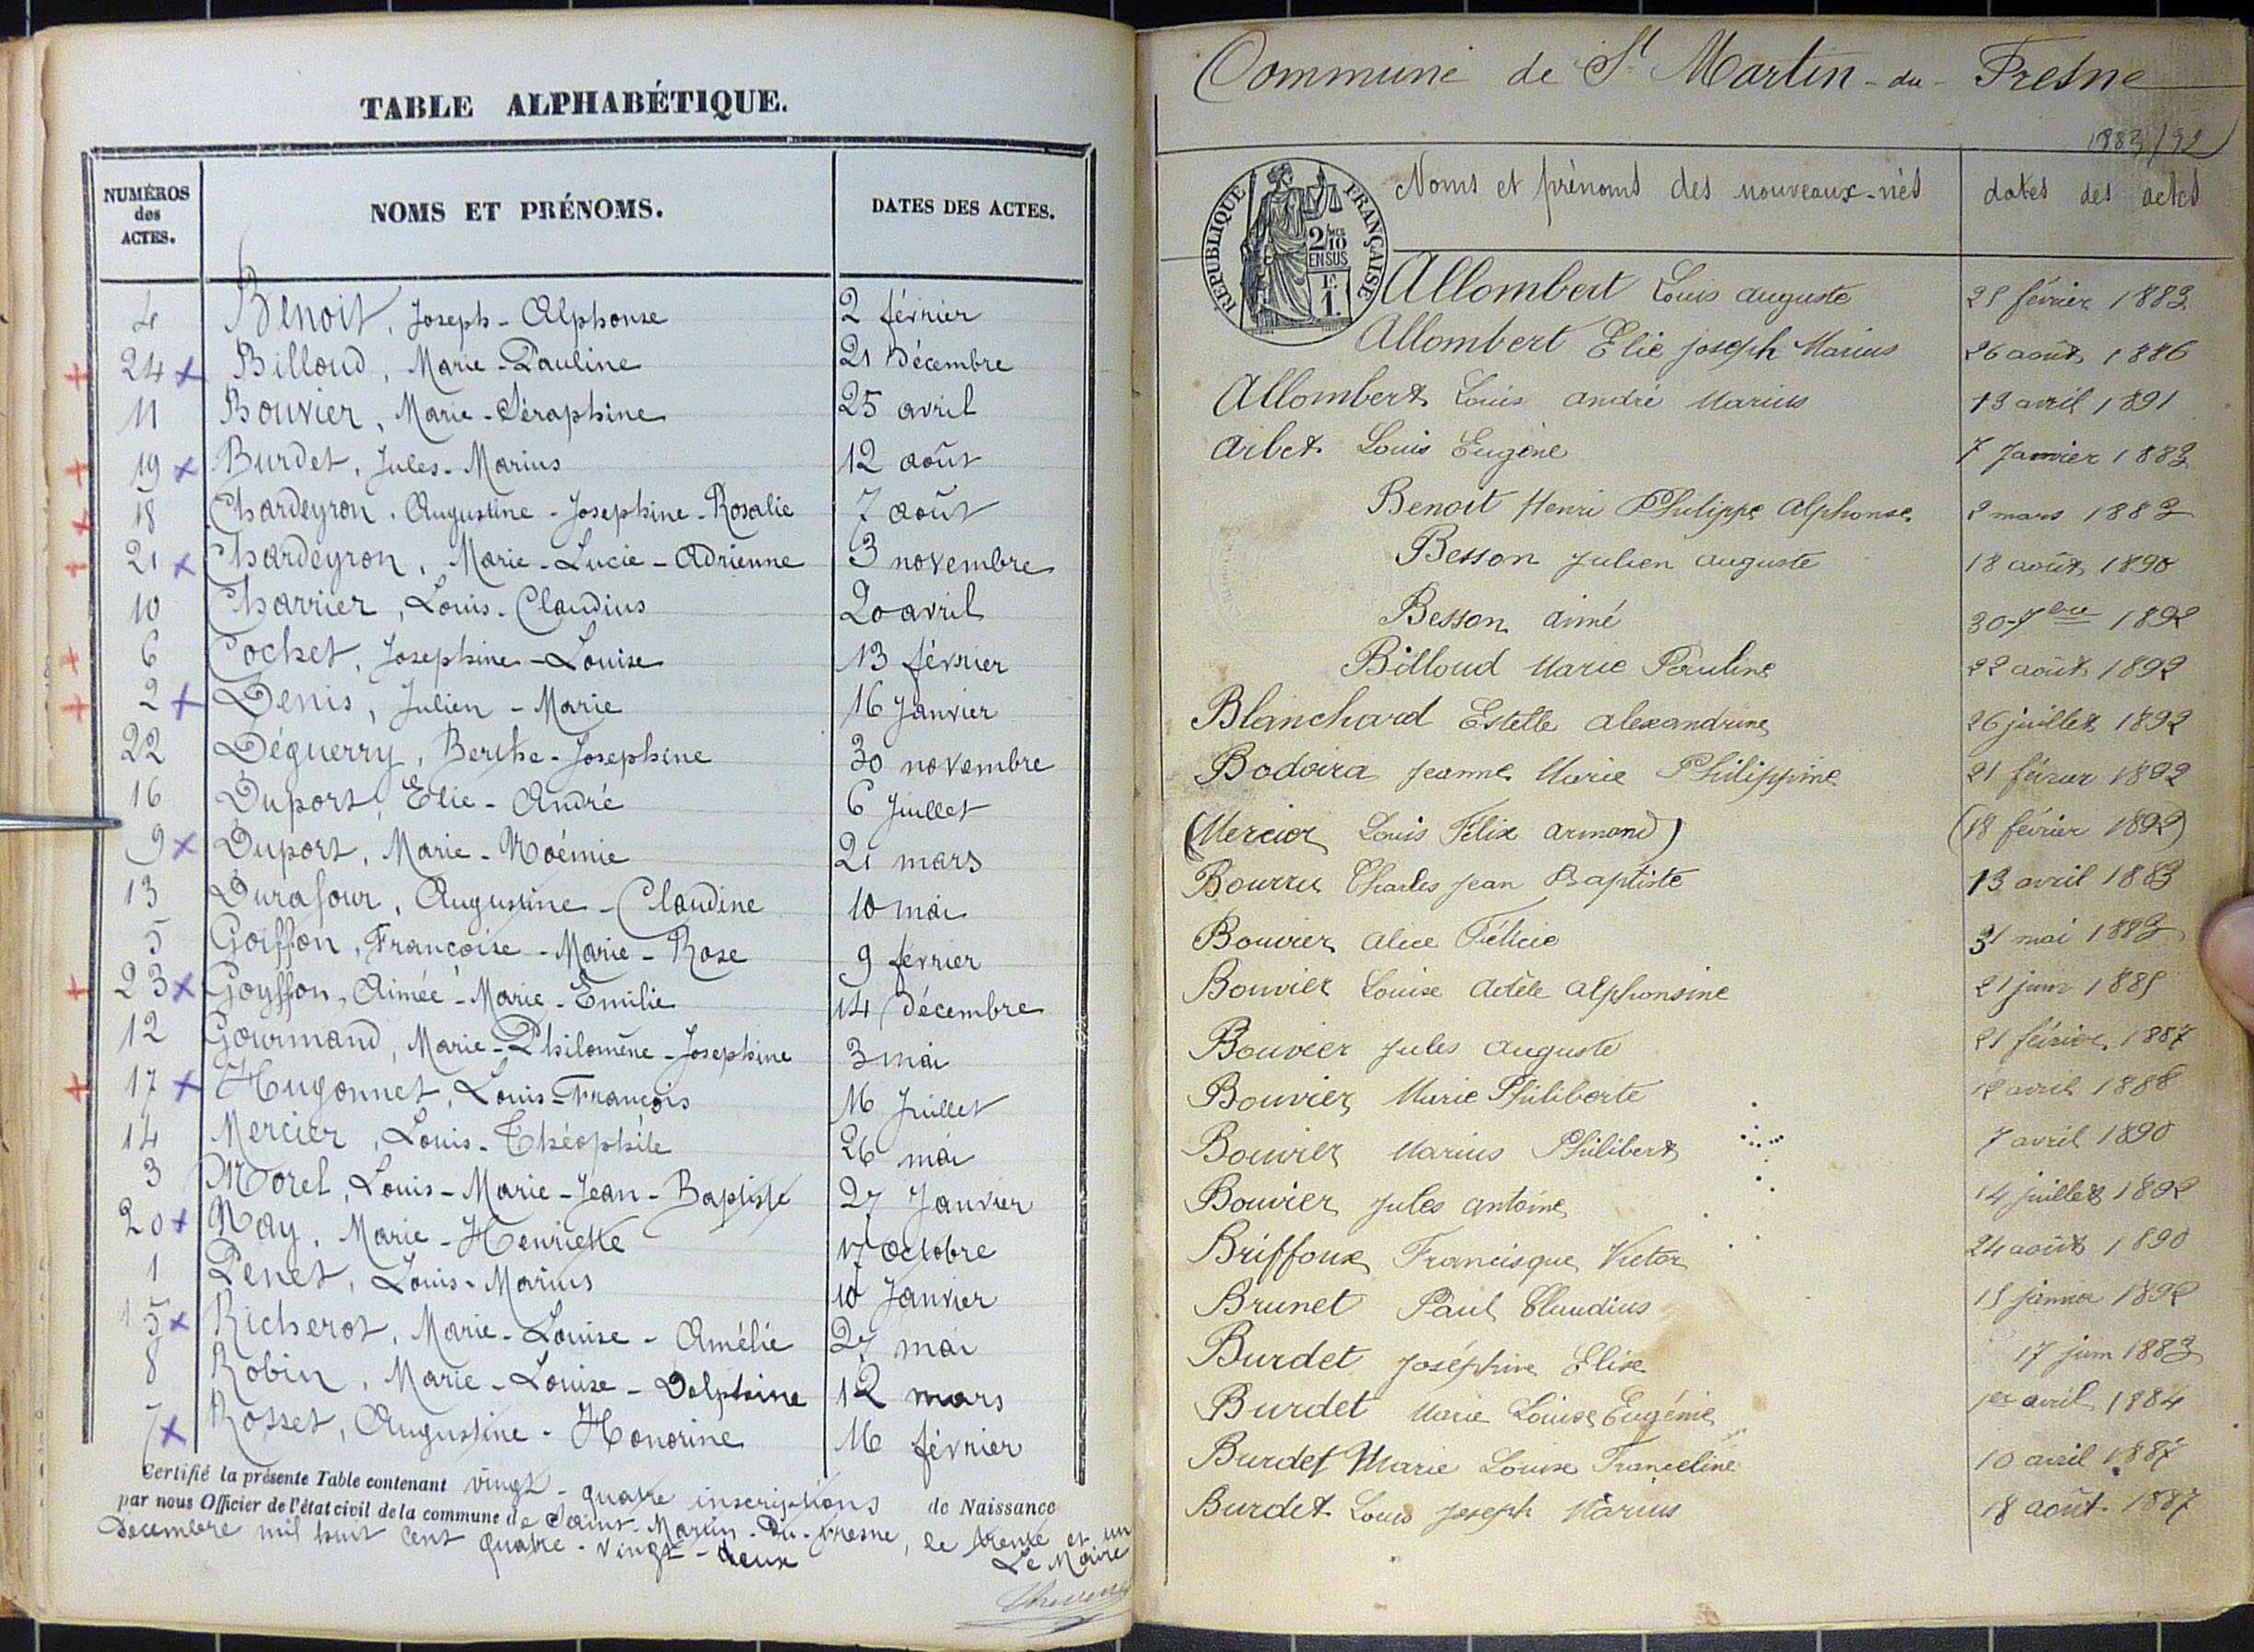 TABLE ALPHABÉTIQUE.
NUMÉROS des ACTES. NOMS ET PRÉNOMS. DATES DES ACTES.
4 Benoit, Joseph-Alphonse 2 février
24 x Billoud, Marie-Pauline 21 Décembre
11 Bouvier, Marie-Séraphine 25 avril
19 x Burdet, Jules-Marius 12 août
18 Chardeyron, Augustine-Josephine-Rosalie 7 août
21 x Chardeyron, Marie-Lucie-Adrienne 3 novembre
10 Charrier, Louis-Claudius 20 avril
6 Cochet, Josephine-Louise 13 février
2 x Denis, Julien-Marie 16 Janvier
22 Déguerry, Berthe-Josephine 30 novembre
16 Duport, Elie-André 6 Juillet
9 x Duport, Marie-Noémie 21 mars
13 Durafour, Augustine-Claudine 10 mai
5 Goiffon, Françoise-Marie-Rose 9 février
23 x Goyffon, Aimée-Marie-Emilie 14 Décembre
12 Gourmand, Marie-Philomène-Josephine 3 mai
17 x Hugonnet, Louis-François 16 Juillet
14 Mercier, Louis-Théophile 26 mai
3 Morel, Louis-Marie-Jean-Baptiste 27 Janvier
20 x Nay, Marie-Henriette 17 octobre
1 Penet, Louis-Marius 10 Janvier
15 x Richerot, Marie-Louise-Amélie 27 mai
8 Robin, Marie-Louise-Delphine 12 mars
7 x Rosset, Augustine-Honorine 16 février
Certifié la présente Table contenant vingt-quatre inscriptions de Naissance
par nous Officier de l'état civil de la commune de Saint-Martin-Du-Fresne, le trente et un
Décembre mil huit Cent quatre-vingt-deux
Le Maire
Commune de St Martin-du-Fresne
1883/92
Noms et prénoms des nouveaux-nés dates des actes
RÉPUBLIQUE FRANÇAISE
2/10 EN SUS
1F.
Allombert Louis auguste février 1883
Allombert Elie Joseph Marius 26 août 1886
Allombert Louis andré Marius 13 avril 1891
Arbet Louis Eugène 7 Janvier 1883
Benoit Henri Philippe Alphonse 2 mars 1883
Besson Julien auguste 18 août 1890
Besson aimé 30 7bre 1892
Billoud Marie Pauline 22 août 1892
Blanchard Estelle Alexandrine 26 juillet 1892
Bodoira Jeanne Marie Philippine 21 février 1892
(Mercier Louis Félix armand) (18 février 1892)
Bourru Charles Jean Baptiste 13 avril 1883
Bouvier Alice Félicie 31 mai 1883
Bouvier Louise Adèle Alphonsine 21 juin 1885
Bouvier Jules Auguste 21 février 1887
Bouvier Marie Philiberte avril 1888
Bouvier Marius Philibert 7 avril 1890
Bouvier Jules antoine 14 juillet 1892
Briffoux Francisque Victor 24 août 1890
Brunet Paul Claudius 15 janvier 1892
Burdet Joséphine Elise 17 juin 1883
Burdet Marie Louise Eugénie 1er avril 1884
Burdet Marie Louise Franceline 10 avril 1887
Burdet Louis Joseph Marius 18 août 1887